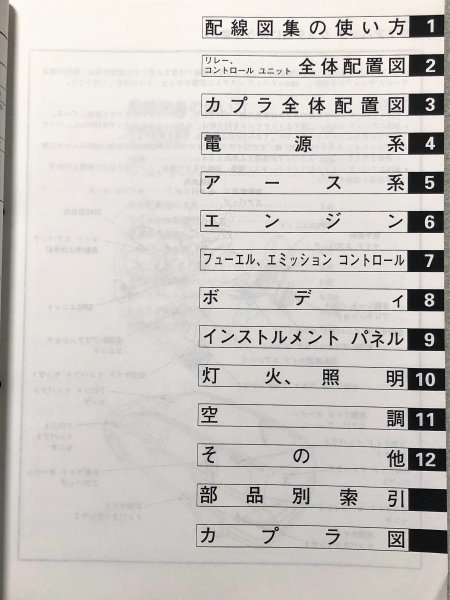 配線図集の使い方 1
リレー、
コントロール ユニット 全体配置図 2
カプラ全体配置図 3
電源系 4
アース系 5
エンジン 6
フューエル、エミッション コントロール 7
ボディ 8
インストルメント パネル 9
灯火、照明 10
空調 11
その他 12
部品別索引
カプラ図